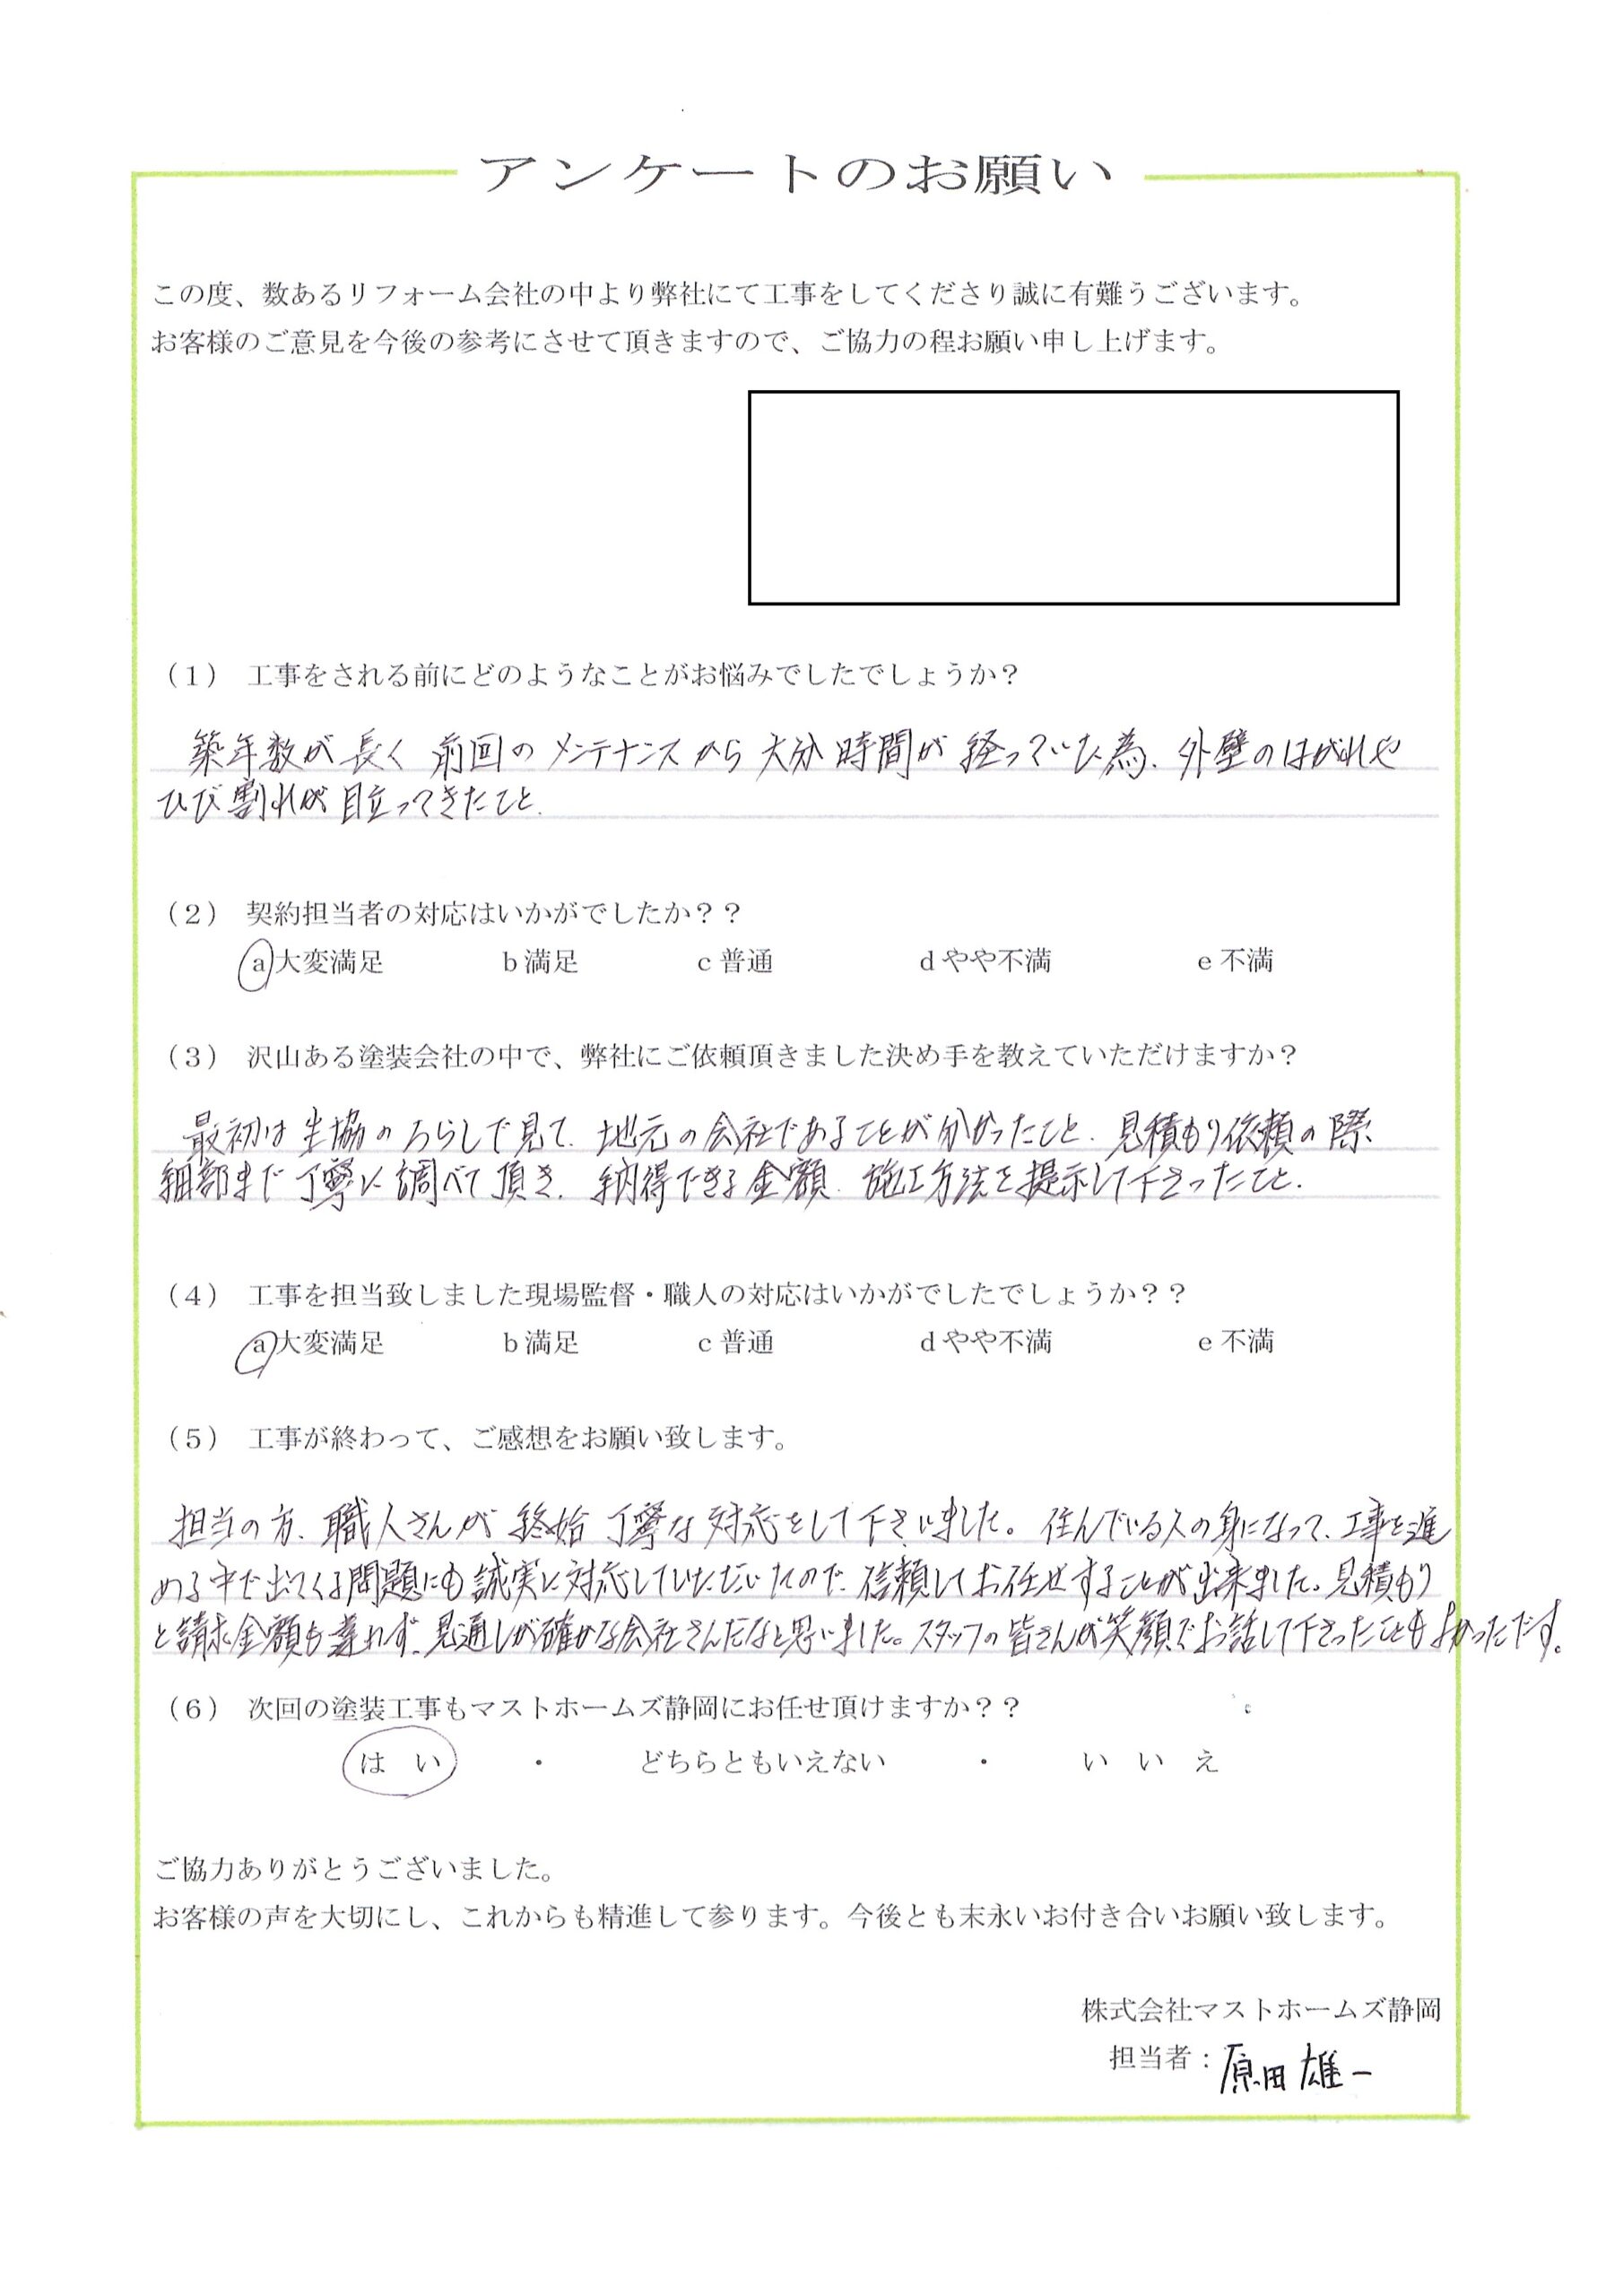 アンケートのお願い
この度、数あるリフォーム会社の中より弊社にて工事をしてくださり誠に有難うございます。
お客様のご意見を今後の参考にさせて頂きますので、ご協力の程お願い申し上げます。
（1） 工事をされる前にどのようなことがお悩みでしたでしょうか？
築年数が長く 前回のメンテナンスから大分時間が経っていた為、外壁のはがれや
ひび割れが目立ってきたこと.
（2） 契約担当者の対応はいかがでしたか？？
a 大変満足 b 満足 c 普通 d やや不満 e 不満
（3） 沢山ある塗装会社の中で、弊社にご依頼頂きました決め手を教えていただけますか？
最初は生協のちらしで見て、地元の会社であることが分かったこと、見積もり依頼の際、
細部まで丁寧に調べて頂き、納得できる金額、施工方法を提示して下さったこと.
（4） 工事を担当致しました現場監督・職人の対応はいかがでしたでしょうか？？
a 大変満足 b 満足 c 普通 d やや不満 e 不満
（5） 工事が終わって、ご感想をお願い致します。
担当の方、職人さんが終始丁寧な対応をして下さいました。住んでいる人の身になって、工事を進
める中で出てくる問題にも誠実に対応していただいたので、信頼してお任せすることが出来ました。見積もり
と請求金額も違わず、見通しが確かな会社さんだなと思いました。スタッフの皆さんが笑顔でお話して下さったこともよかったです。
（6） 次回の塗装工事もマストホームズ静岡にお任せ頂けますか？？
はい ・ どちらともいえない ・ いいえ
ご協力ありがとうございました。
お客様の声を大切にし、これからも精進して参ります。今後とも末永いお付き合いお願い致します。
株式会社マストホームズ静岡
担当者：原田 雄一